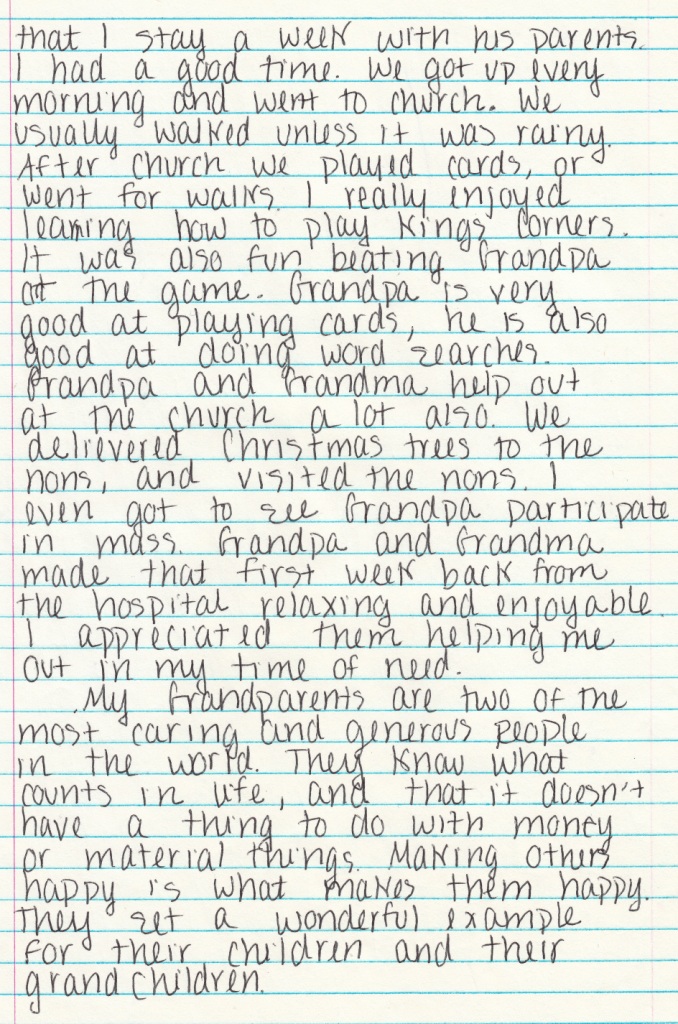 that I stay a week with his parents.
I had a good time. We got up every
morning and went to church. We
usually walked unless it was rainy.
After church we played cards, or
went for walks. I really enjoyed
learning how to play Kings' Corners.
It was also fun beating Grandpa
at the game. Grandpa is very
good at playing cards, he is also
good at doing word searches.
Grandpa and Grandma help out
at the church a lot also. We
delievered Christmas trees to the
nons, and visited the nons. I
even got to see Grandpa participate
in mass. Grandpa and Grandma
made that first week back from
the hospital relaxing and enjoyable.
I appreciated them helping me
out in my time of need.
My Grandparents are two of the
most caring and generous people
in the world. They know what
counts in life, and that it doesn't
have a thing to do with money
or material things. Making others
happy is what makes them happy.
They set a wonderful example
for their children and their
grandchildren.